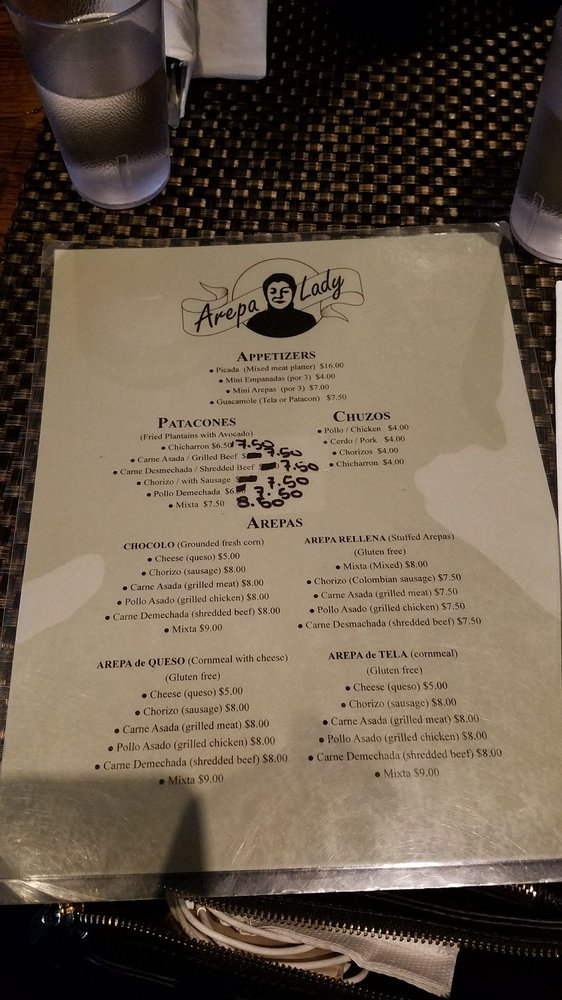 Arepa Lady
APPETIZERS
• Picada (Mixed meat platter) $16.00
• Mini Empanadas (por 3) $4.00
• Mini Arepas (por 3) $7.00
• Guacamole (Tela or Patacon) $7.50
PATACONES
(Fried Plantains with Avocado)
• Chicharron $6.50 7.50
• Carne Asada / Grilled Beef $ 7.50
• Carne Desmechada / Shredded Beef 7.50
• Chorizo / with Sausage 7.50
• Pollo Demechada $6. 7.50
• Mixta $7.50 8.50
CHUZOS
• Pollo / Chicken $4.00
• Cerdo / Pork $4.00
• Chorizos $4.00
• Chicharron $4.00
AREPAS
CHOCOLO (Grounded fresh corn)
• Cheese (queso) $5.00
• Chorizo (sausage) $8.00
• Carne Asada (grilled meat) $8.00
• Pollo Asado (grilled chicken) $8.00
• Carne Demechada (shredded beef) $8.00
• Mixta $9.00
AREPA RELLENA (Stuffed Arepas)
(Gluten free)
• Mixta (Mixed) $8.00
• Chorizo (Colombian sausage) $7.50
• Carne Asada (grilled meat) $7.50
• Pollo Asado (grilled chicken) $7.50
• Carne Desmachada (shredded beef) $7.50
AREPA de QUESO (Cornmeal with cheese)
(Gluten free)
• Cheese (queso) $5.00
• Chorizo (sausage) $8.00
• Carne Asada (grilled meat) $8.00
• Pollo Asado (grilled chicken) $8.00
• Carne Demechada (shredded beef) $8.00
• Mixta $9.00
AREPA de TELA (cornmeal)
(Gluten free)
• Cheese (queso) $5.00
• Chorizo (sausage) $8.00
• Carne Asada (grilled meat) $8.00
• Pollo Asado (grilled chicken) $8.00
• Carne Demechada (shredded beef) $8.00
• Mixta $9.00